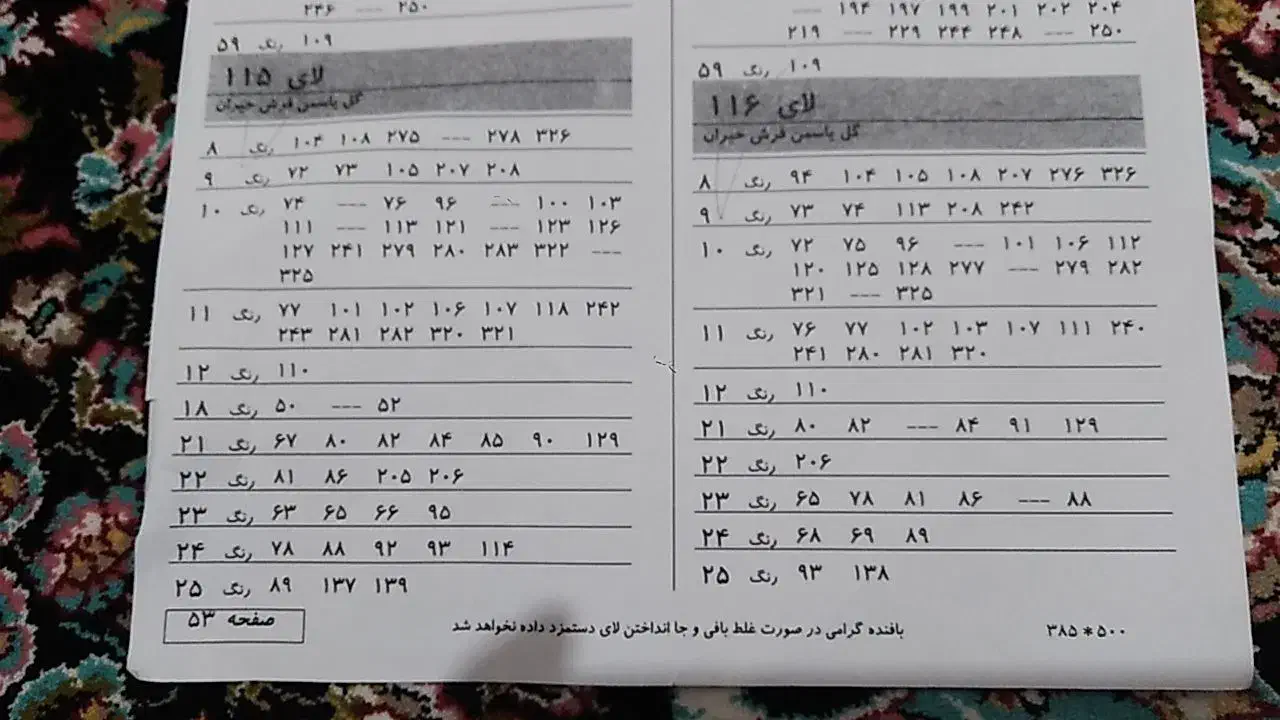 ۲۴۶ --- ۲۵۰
۵۹ رنگ ۱۰۹
لای ۱۱۵
گل یاسمن فرش حیران
۸ رنگ ۱۰۴ ۱۰۸ ۲۷۵ --- ۲۷۸ ۳۲۶
۹ رنگ ۷۲ ۷۳ ۱۰۵ ۲۰۷ ۲۰۸
۱۰ رنگ ۷۴ --- ۷۶ ۹۶ --- ۱۰۰ ۱۰۳
۱۱۱ --- ۱۱۳ ۱۲۱ --- ۱۲۳ ۱۲۶
۱۲۷ ۲۴۱ ۲۷۹ ۲۸۰ ۲۸۳ ۳۲۲ ---
۳۲۵
۱۱ رنگ ۷۷ ۱۰۱ ۱۰۲ ۱۰۶ ۱۰۷ ۱۱۸ ۲۴۲
۲۴۳ ۲۸۱ ۲۸۲ ۳۲۰ ۳۲۱
۱۲ رنگ ۱۱۰
۱۸ رنگ ۵۰ --- ۵۲
۲۱ رنگ ۶۷ ۸۰ ۸۲ ۸۴ ۸۵ ۹۰ ۱۲۹
۲۲ رنگ ۸۱ ۸۶ ۲۰۵ ۲۰۶
۲۳ رنگ ۶۳ ۶۵ ۶۶ ۹۵
۲۴ رنگ ۷۸ ۸۸ ۹۲ ۹۳ ۱۱۴
۲۵ رنگ ۸۹ ۱۳۷ ۱۳۹
--- ۱۹۴ ۱۹۷ ۱۹۹ ۲۰۱ ۲۰۲ ۲۰۴
۲۱۹ --- ۲۲۹ ۲۴۴ ۲۴۸ --- ۲۵۰
۵۹ رنگ ۱۰۹
لای ۱۱۶
گل یاسمن فرش حیران
۸ رنگ ۹۴ ۱۰۴ ۱۰۵ ۱۰۸ ۲۰۷ ۲۷۶ ۳۲۶
۹ رنگ ۷۳ ۷۴ ۱۱۳ ۲۰۸ ۲۴۲
۱۰ رنگ ۷۲ ۷۵ ۹۶ --- ۱۰۱ ۱۰۶ ۱۱۲
۱۲۰ ۱۲۵ ۱۲۸ ۲۷۷ --- ۲۷۹ ۲۸۲
۳۲۱ --- ۳۲۵
۱۱ رنگ ۷۶ ۷۷ ۱۰۲ ۱۰۳ ۱۰۷ ۱۱۱ ۲۴۰
۲۴۱ ۲۸۰ ۲۸۱ ۳۲۰
۱۲ رنگ ۱۱۰
۲۱ رنگ ۸۰ ۸۲ --- ۸۴ ۹۱ ۱۲۹
۲۲ رنگ ۲۰۶
۲۳ رنگ ۶۵ ۷۸ ۸۱ ۸۶ --- ۸۸
۲۴ رنگ ۶۸ ۶۹ ۸۹
۲۵ رنگ ۹۳ ۱۳۸
صفحه ۵۳
بافنده گرامی در صورت غلط بافی و جا انداختن لای دستمزد داده نخواهد شد
۳۸۵ * ۵۰۰